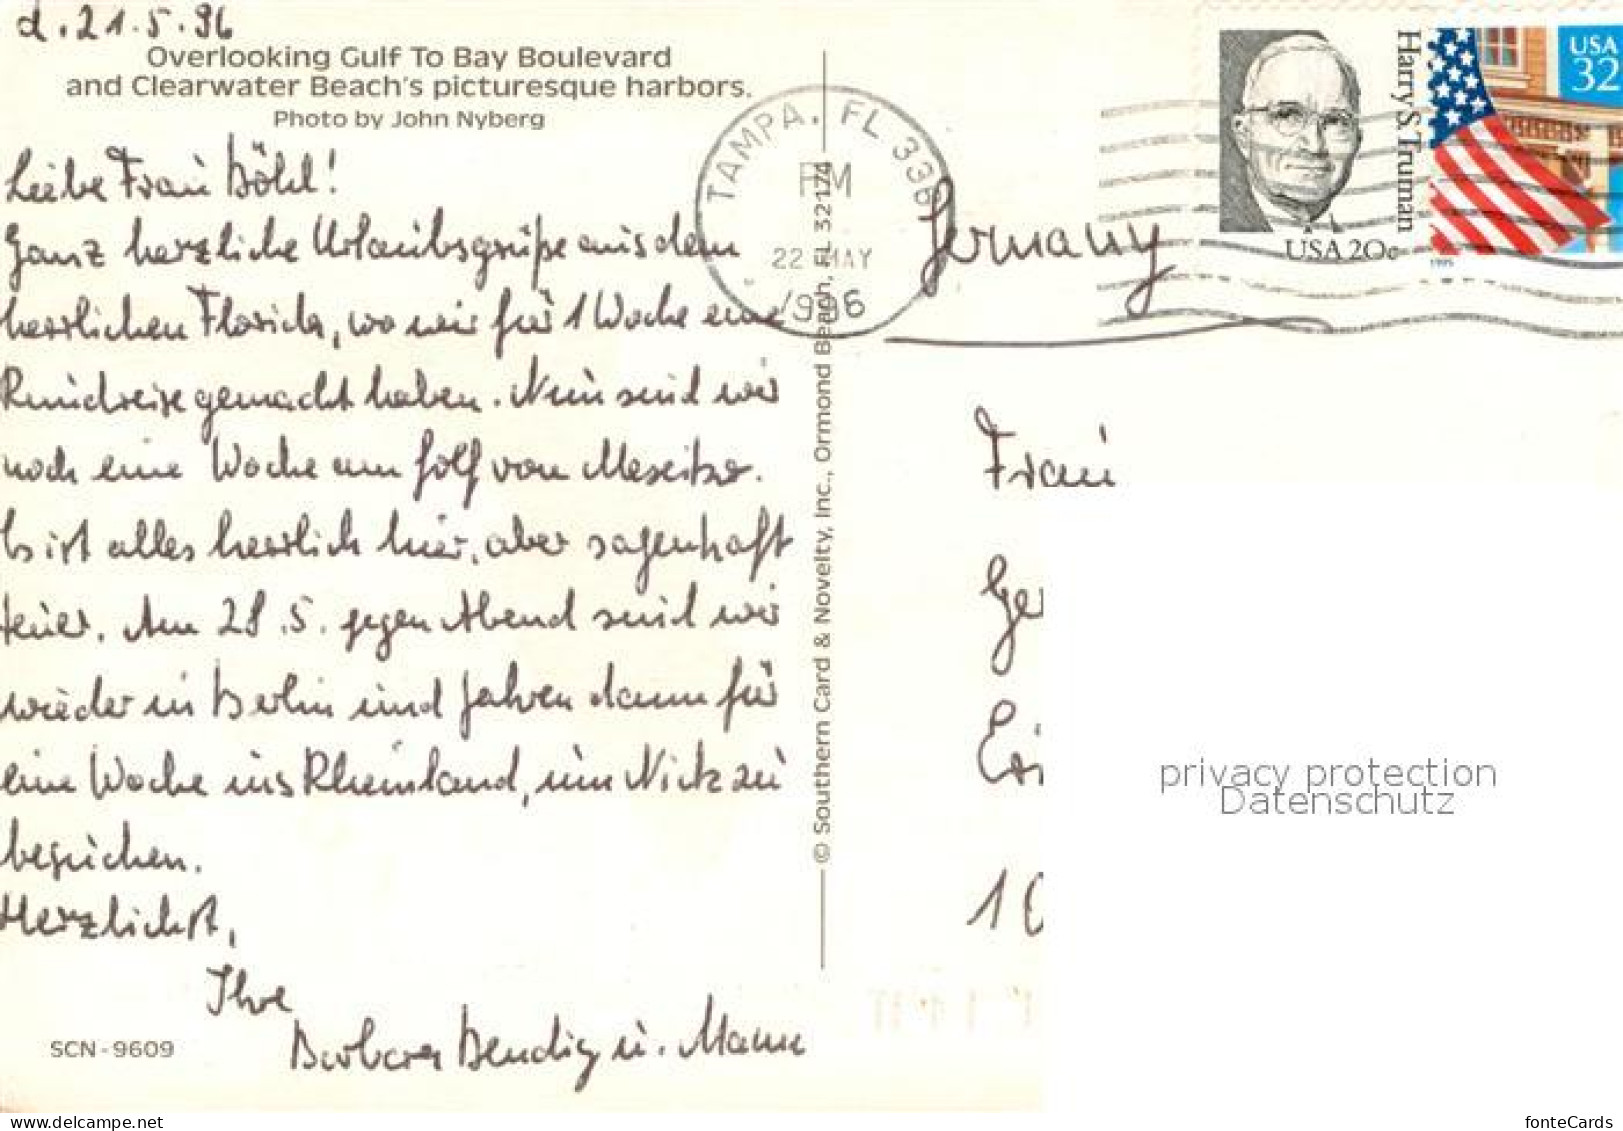 d. 21.5.96
Overlooking Gulf To Bay Boulevard
and Clearwater Beach's picturesque harbors.
Photo by John Nyberg
Liebe Frau Böhl!
Ganz herzliche Urlaubsgrüße aus dem
herrlichen Florida, wo wir für 1 Woche eine
Rundreise gemacht haben. Nun sind wir
noch eine Woche am Golf von Mexiko.
Es ist alles herrlich hier, aber sagenhaft
teuer. Am 28.5. gegen Abend sind wir
wieder in Berlin und fahren dann für
eine Woche ins Rheinland, um Nick zu
besuchen.
Herzlichst,
Ihre
Barbara Bendig u. Mann
SCN-9609
© Southern Card & Novelty, Inc., Ormond Beach, FL 32174
TAMPA, FL 336
PM
22 MAY
1996
Harry S. Truman
USA 20c
USA
32
1995
Germany
Frau
Ge
10
privacy protection
Datenschutz
www.delcampe.net
fonteCards